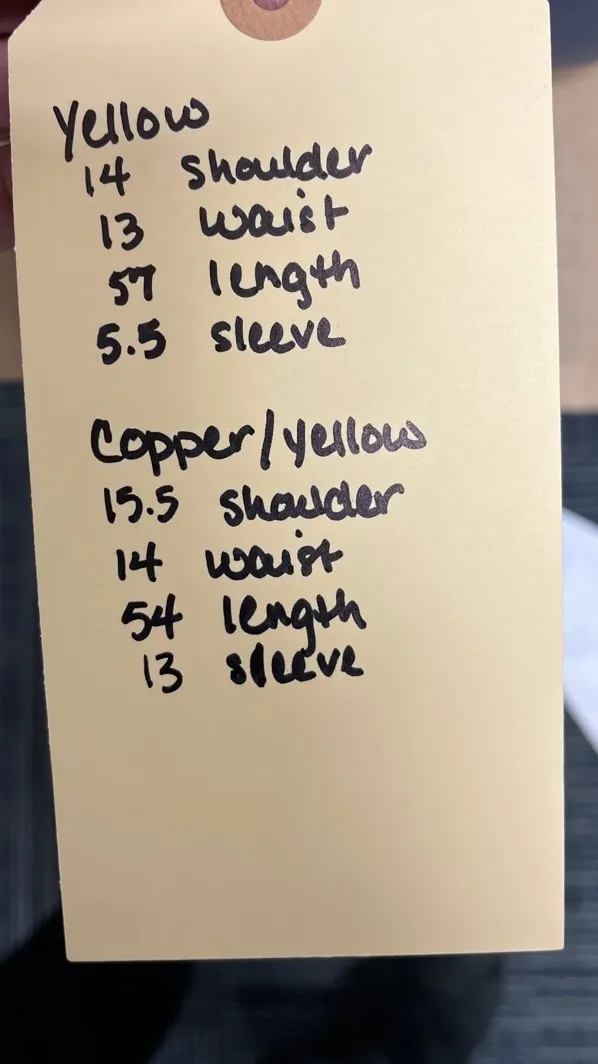 Yellow
14 shoulder
13 waist
57 length
5.5 sleeve
Copper/yellow
15.5 shoulder
14 waist
54 length
13 sleeve